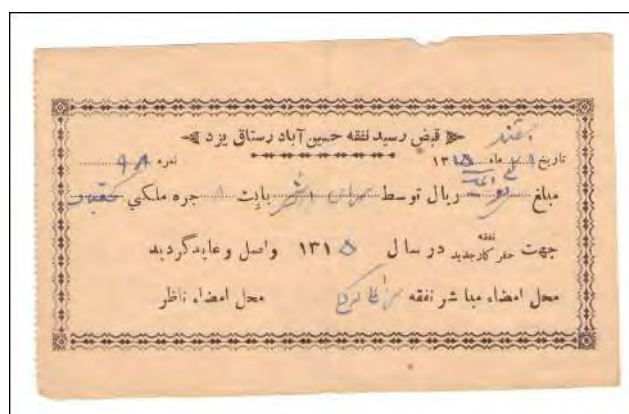 قبض رسید نفقه حسین آباد رستاق یزد
تاریخ ماه ۱۳۱۵ نمره ۹۸
مبلغ ریال توسط بابت جره ملکی
جهت نفقه حفر کار جدید در سال ۱۳۱۵ واصل و عاید گردید
محل امضاء مباشر نفقه محل امضاء ناظر